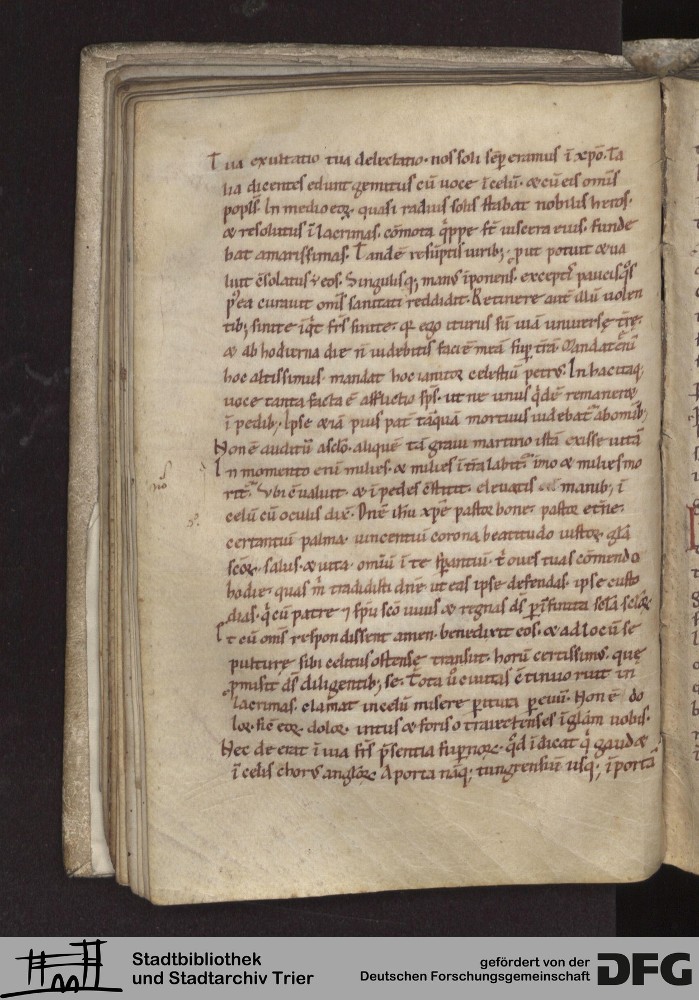 Tua exultatio tua delectatio. nos soli sēp eramus ī xp̄o. Ta
lia dicentes edunt gemitus cū voce ī celū. & cū eis om̄is
popl̓s. In medio eoꝝ quasi radius solis stabat nobilis heros.
& resolutus ī lacrimas. cōmota q̄ppe st̄ uiscera eius. funde
bat amarissimas. Tandē resūptis uirib; put potuit & ua
luit cōsolatus ē eos. Singulisq; manꝰ īponens. exceptis paucisq̄s
p̄ea curauit om̄s sanitati reddidit. Retinere autē illū uolen
tib; sinite īq̄t fr̄s sinite. qr̄ ego iturus sū uiā uniuersę t̄rę.
& ab hodierna die n̄ uidebitis faciē meā sup̄ t̄rā. Mandat enī
hoc altissimus. mandat hoc ianitor celestiū petrꝰ. In hac itaq;
uoce tanta facta ē afflictio sp̄s. ut ne unus q̄dē remaneret
ī pedib; Ipse & iā pius pat̄ tāquā mortuus uidebat̄ ab omib;
Non ē auditū a sclo. aliquē tā graui martirio istā exisse uitā
In momento enī milies. & milies ī t̄rā labit̄. imo & milies mo
rit̄. Ubi cualuit. & ī pedes cōstitit. eleuatis manib; ī
celū cū oculis dix̄. Dn̄e ih̄u xp̄e pastor bone. pastor et̄ne.
certantiū palma. uincentiū corona. beatitudo iustoꝝ. glā
sc̄oꝝ. salus. & uita. omniū ī te sperantiū. t̄ oues tuas cōmendo
hodie. quas m̄ tradidisti dn̄e ut eas ipse defendas. ipse custo
dias. q̄ cū patre ⁊ sp̄u sc̄o uiuis & regnas d̄s p̄ īfinita sc̄la scl̄oꝝ
Et cū om̄s respondissent amen. benedixit eos. & ad locū se
pulturę sibi celitus ostensę transiit. horū certissimꝰ. quę
p̄misit d̄s diligentib; se. Tota ū ciuitas cōtinuo ruit in
lacrimas. clamat in celū misere peritura p̄ ciuiū. Non ē do
lor. sic̄ eoꝝ dolor. intus & foris o traiectenses ī glām uobis.
Hec deerat ī uia fr̄s p̄sentia supernoꝝ. q̄d īdicat q̄ gaud&
ī celis chorꝰ angloꝝ. A porta nāq; tungrensiū usq; ī portā
Stadtbibliothek
und Stadtarchiv Trier
gefördert von der
Deutschen Forschungsgemeinschaft
DFG